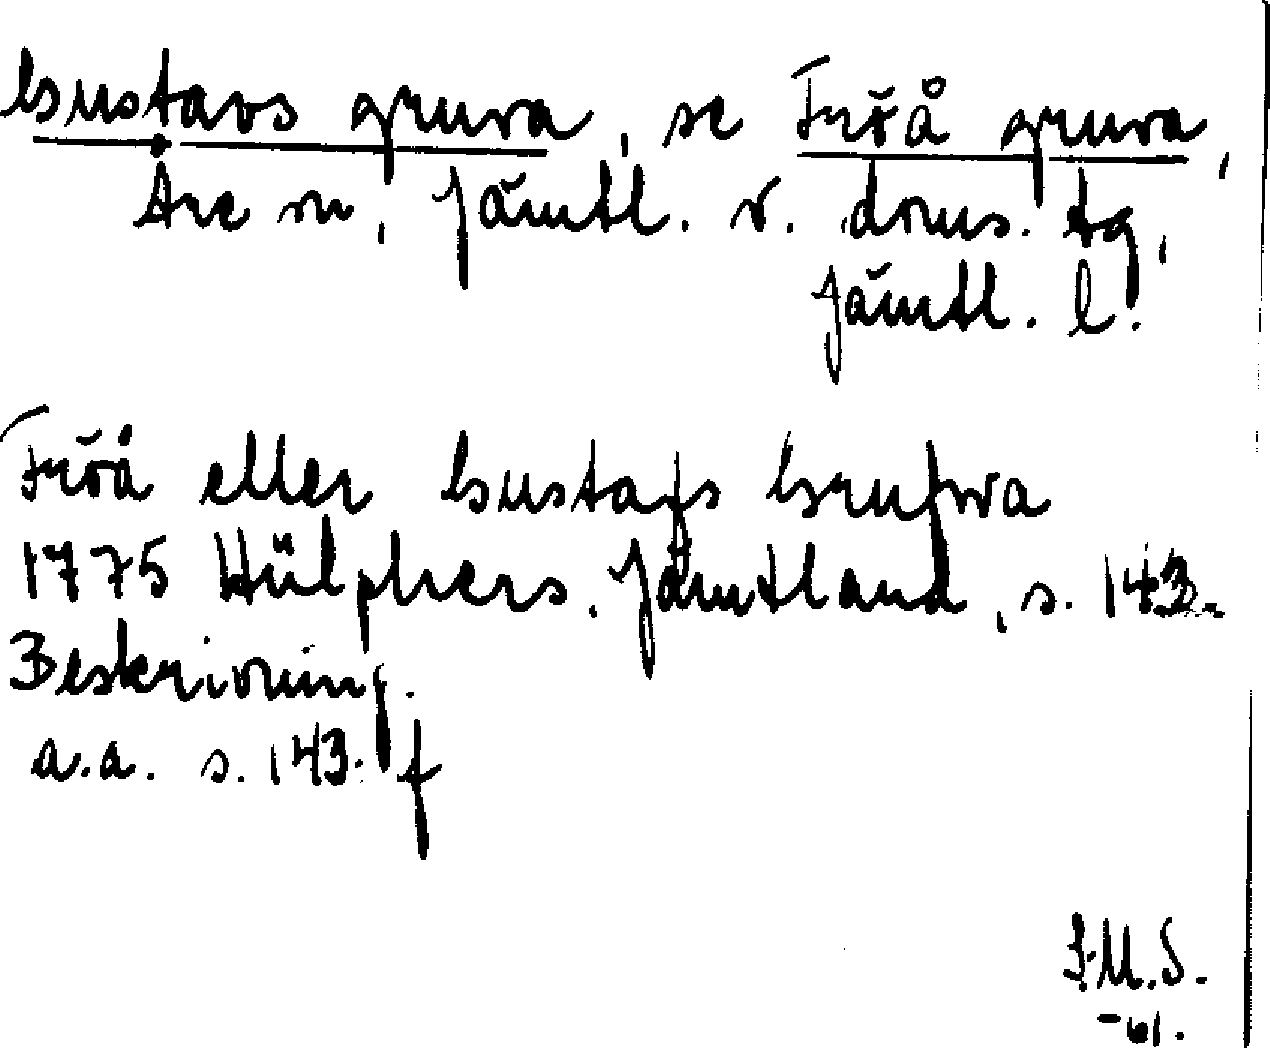 Gustavs gruva, se Fröå gruva,
Åre sn, Jämtl. v. doms. tg,
Jämtl. l.
Fröå eller Gustafs Grufwa
1775 Hülphers. Jämtland, s. 143.
Beskrivning.
a.a. s. 143. f
F.M.S.
-61.